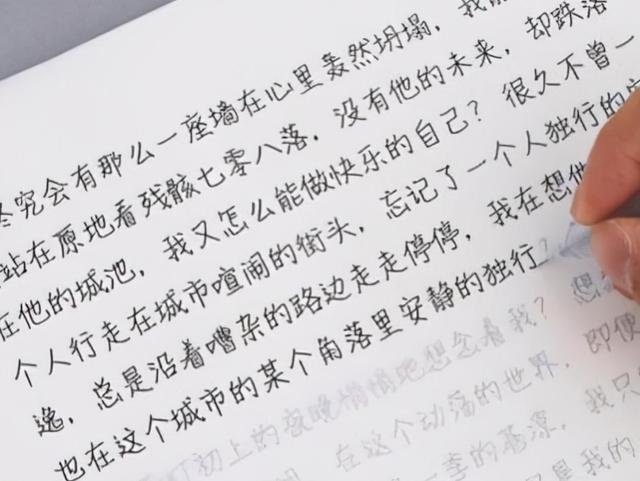 终究会有那么一座墙在心里轰然坍塌，我
站在原地看残骸七零八落，没有他的未来，却跌落
在他的城池，我又怎么能做快乐的自己？很久不曾一
个人行走在城市喧闹的街头，忘记了一个人独行的
逸，总是沿着嘈杂的路边走走停停，我在想他
也在这个城市的某个角落里安静的独行？
初上的夜晚悄悄地想念着我？想
在这个动荡的世界，即便
一季的荒凉，我只
是我的